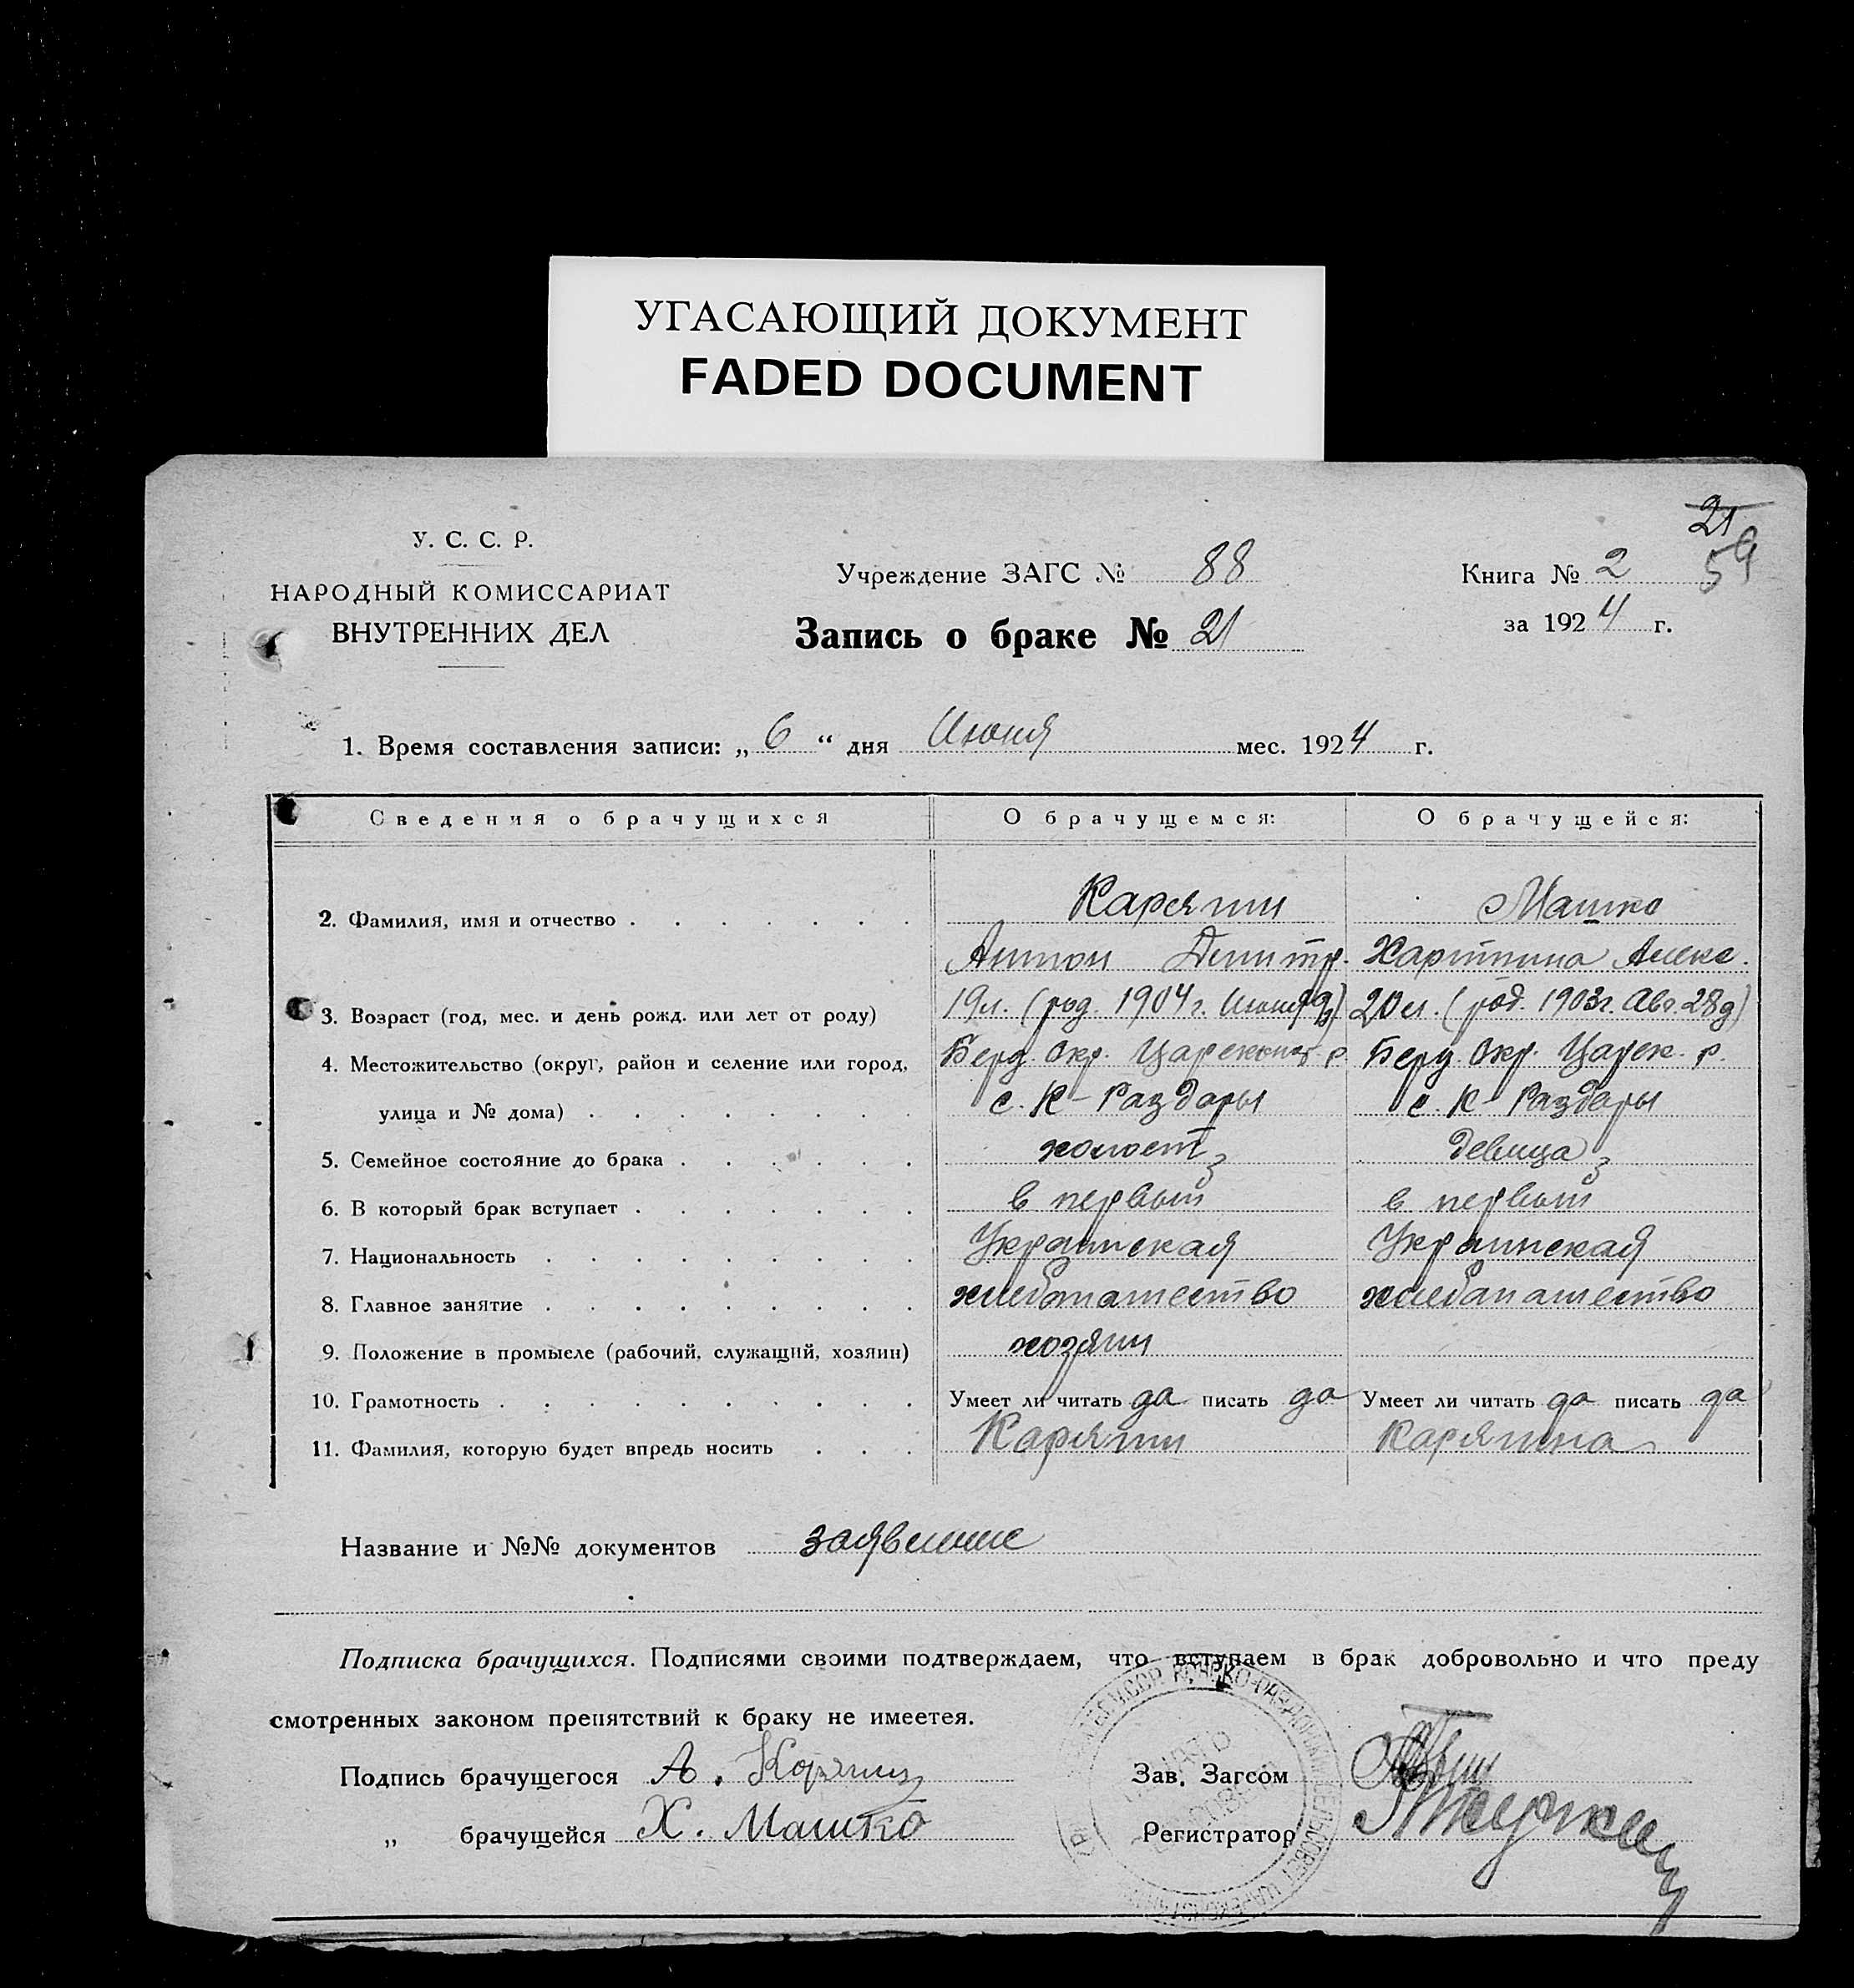 УГАСАЮЩИЙ ДОКУМЕНТ
FADED DOCUMENT
21
59
У. С. С. Р.
НАРОДНЫЙ КОМИССАРИАТ
ВНУТРЕННИХ ДЕЛ
Учреждение ЗАГС № 88
Запись о браке № 21
Книга № 2
за 1924 г.
1. Время составления записи: „ 6 “ дня Июня мес. 1924 г.
Сведения о брачущихся О брачущемся: О брачущейся:
2. Фамилия, имя и отчество Карягин Машко
Антон Дмитр. Харитина Алекс.
3. Возраст (год, мес. и день рожд. или лет от роду) 19 л. (род. 1904 г. Июня 20 л. (род. 1903 г. Авг. 28 д)
4. Местожительство (округ, район и селение или город, Берд. Окр. Цареконст. р. Берд. Окр. Царек. р.
улица и № дома) с. К-Раздоры с. К-Раздоры
5. Семейное состояние до брака холост девица
6. В который брак вступает в первый в первый
7. Национальность Украинская Украинская
8. Главное занятие хлебопашество хлебапашество
9. Положение в промысле (рабочий, служащий, хозяин) хозяин
10. Грамотность Умеет ли читать да писать да Умеет ли читать да писать да
11. Фамилия, которую будет впредь носить Карягин Карягина
Название и №№ документов заявление
Подписка брачущихся. Подписями своими подтверждаем, что вступаем в брак добровольно и что преду
смотренных законом препятствий к браку не имеется.
Подпись брачущегося А. Корягин Зав. Загсом
„ брачущейся Х. Машко Регистратор